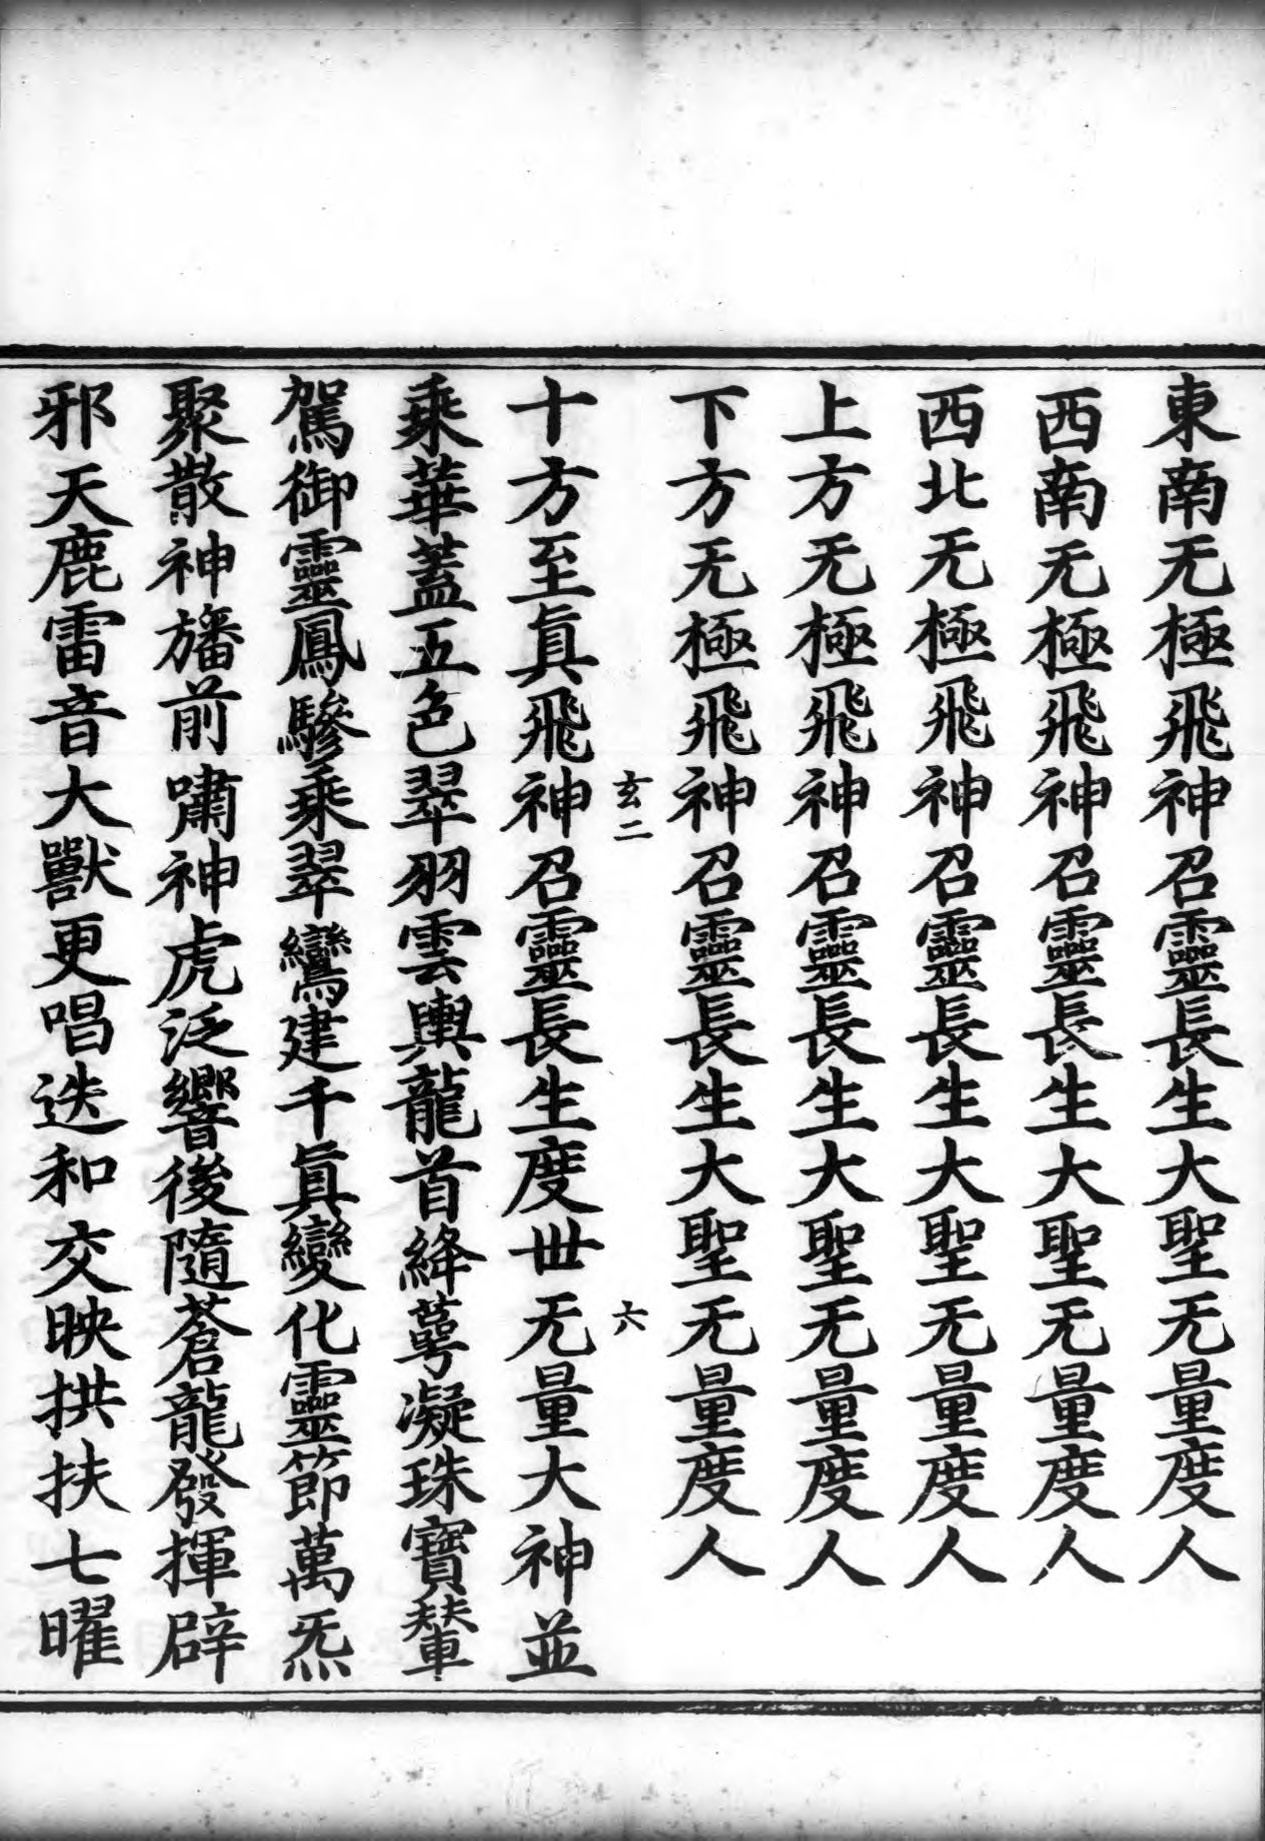 東南无極飛神召靈長生大聖无量度人
西南无極飛神召靈長生大聖无量度人
西北无極飛神召靈長生大聖无量度人
上方无極飛神召靈長生大聖无量度人
下方无極飛神召靈長生大聖无量度人
玄二 六
十方至眞飛神召靈長生度世无量大神並
乘華蓋五色翠羽雲輿龍首絳蕚凝珠寶輦
駕御靈鳳驂乘翠鸞建千眞變化靈節萬炁
聚散神旛前嘯神虎泛響後隨蒼龍發揮辟
邪天鹿雷音大獸更唱迭和交映拱扶七曜